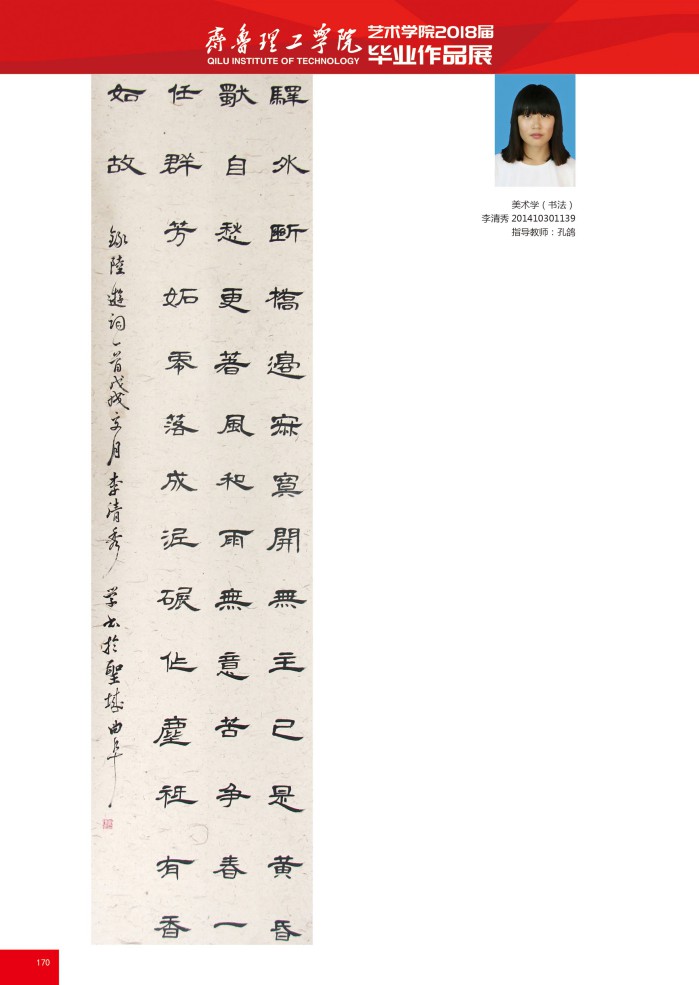 齊魯理工學院
QILU INSTITUTE OF TECHNOLOGY
艺术学院2018届
毕业作品展
美术学（书法）
李清秀 201410301139
指导教师：孔鸽
驛外斷橋邊寂寞開無主已是黃昏
獨自愁更著風和雨無意苦爭春一
任群芳妬零落成泥碾作塵祗有香
如故
錄陸遊詞一首戊戌玄月李清秀學書於聖城曲阜
170